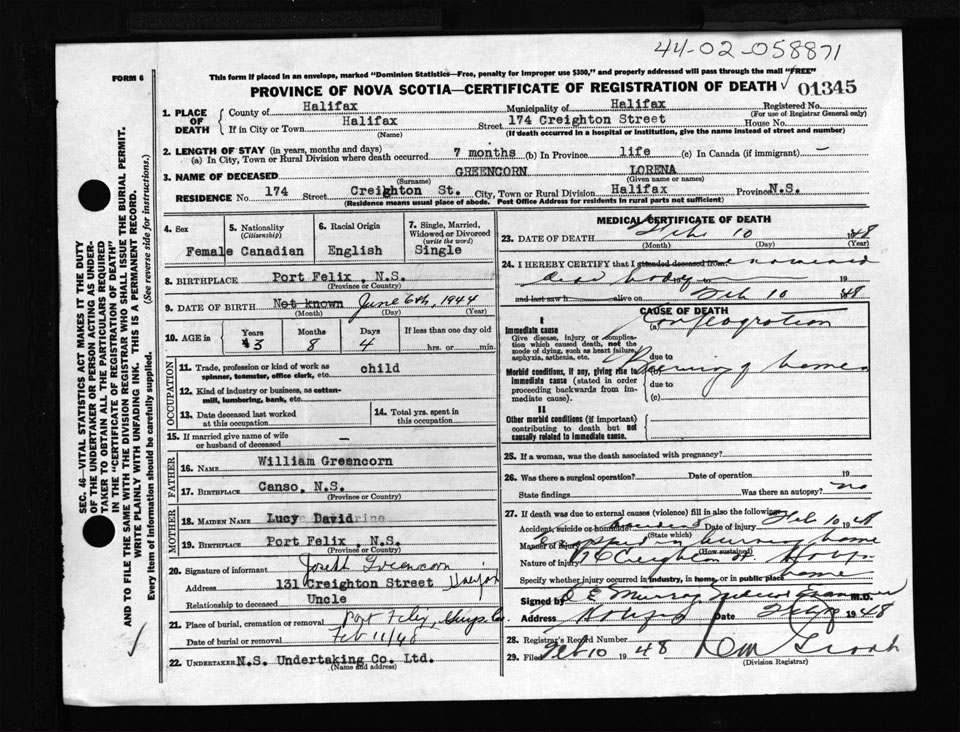 44-02-058871
FORM 6
This form if placed in an envelope, marked "Dominion Statistics—Free, penalty for improper use $300," and properly addressed will pass through the mail "FREE"
PROVINCE OF NOVA SCOTIA—CERTIFICATE OF REGISTRATION OF DEATH 01345
1. PLACE OF DEATH County of Halifax Municipality of Halifax Registered No.
(For use of Registrar General only)
If in City or Town Halifax Street 174 Creighton Street House No.
(Name) (If death occurred in a hospital or institution, give the name instead of street and number)
2. LENGTH OF STAY (in years, months and days)
(a) In City, Town or Rural Division where death occurred 7 months (b) In Province life (c) In Canada (if immigrant) —
3. NAME OF DECEASED GREENCORN LORENA
(Surname) (Given name or names)
RESIDENCE No. 174 Street Creighton St. City, Town or Rural Division Halifax Province N.S.
(Residence means usual place of abode. Post Office Address for residents in rural parts not sufficient)
4. Sex Female
5. Nationality (Citizenship) Canadian
6. Racial Origin English
7. Single, Married, Widowed or Divorced (write the word) Single
8. BIRTHPLACE Port Felix, N.S.
(Province or Country)
9. DATE OF BIRTH Not known June 6th, 1944
(Month) (Day) (Year)
10. AGE in Years Months Days If less than one day old
3 8 4 hrs. or min.
OCCUPATION
11. Trade, profession or kind of work as spinner, teamster, office clerk, etc. child
12. Kind of industry or business, as cotton-mill, lumbering, bank, etc.
13. Date deceased last worked at this occupation
14. Total yrs. spent in this occupation
15. If married give name of wife or husband of deceased —
FATHER
16. NAME William Greencorn
17. BIRTHPLACE Canso, N.S.
(Province or Country)
MOTHER
18. MAIDEN NAME Lucy David
19. BIRTHPLACE Port Felix, N.S.
(Province or Country)
20. Signature of informant Joseph Greencorn
Address 131 Creighton Street Halifax
Relationship to deceased Uncle
21. Place of burial, cremation or removal Port Felix, Guys. Co
Date of burial or removal Feb 11/48
22. UNDERTAKER N.S. Undertaking Co. Ltd.
(Name and address)
MEDICAL CERTIFICATE OF DEATH
23. DATE OF DEATH Feb 10 1948
(Month) (Day) (Year)
24. I HEREBY CERTIFY that I attended deceased from
dead body to 19
and last saw h alive on Feb 10 48
CAUSE OF DEATH
I
Immediate cause (a) Conflagration
Give disease, injury or complication which caused death, not the mode of dying, such as heart failure, asphyxia, asthenia, etc.
due to
Morbid conditions, if any, giving rise to immediate cause (stated in order proceeding backwards from immediate). Burning of home
due to
(c)
II
Other morbid conditions (if important) contributing to death but not causally related to immediate cause.
25. If a woman, was the death associated with pregnancy?
26. Was there a surgical operation? Date of operation 19
State findings Was there an autopsy? no
27. If death was due to external causes (violence) fill in also the following:
Accident, suicide or homicide? Date of injury Feb 10 1948
(State which)
Manner of injury Trapped in burning home
(How sustained)
Nature of injury Creighton St.
Specify whether injury occurred in industry, in home, or in public place home
Signed by D E Murray Medical Examiner M.D.
Address Halifax Date Feb 1948
28. Registrar's Record Number
29. Filed Feb 10 1948
(Division Registrar)
SEC. 46—VITAL STATISTICS ACT MAKES IT THE DUTY
OF THE UNDERTAKER OR PERSON ACTING AS UNDER-
TAKER TO OBTAIN ALL THE PARTICULARS REQUIRED
IN THE "CERTIFICATE OF REGISTRATION OF DEATH"
AND TO FILE THE SAME WITH THE DIVISION REGISTRAR WHO SHALL ISSUE THE BURIAL PERMIT.
WRITE PLAINLY WITH UNFADING INK. THIS IS A PERMANENT RECORD.
Every item of information should be carefully supplied. (See reverse side for instructions.)